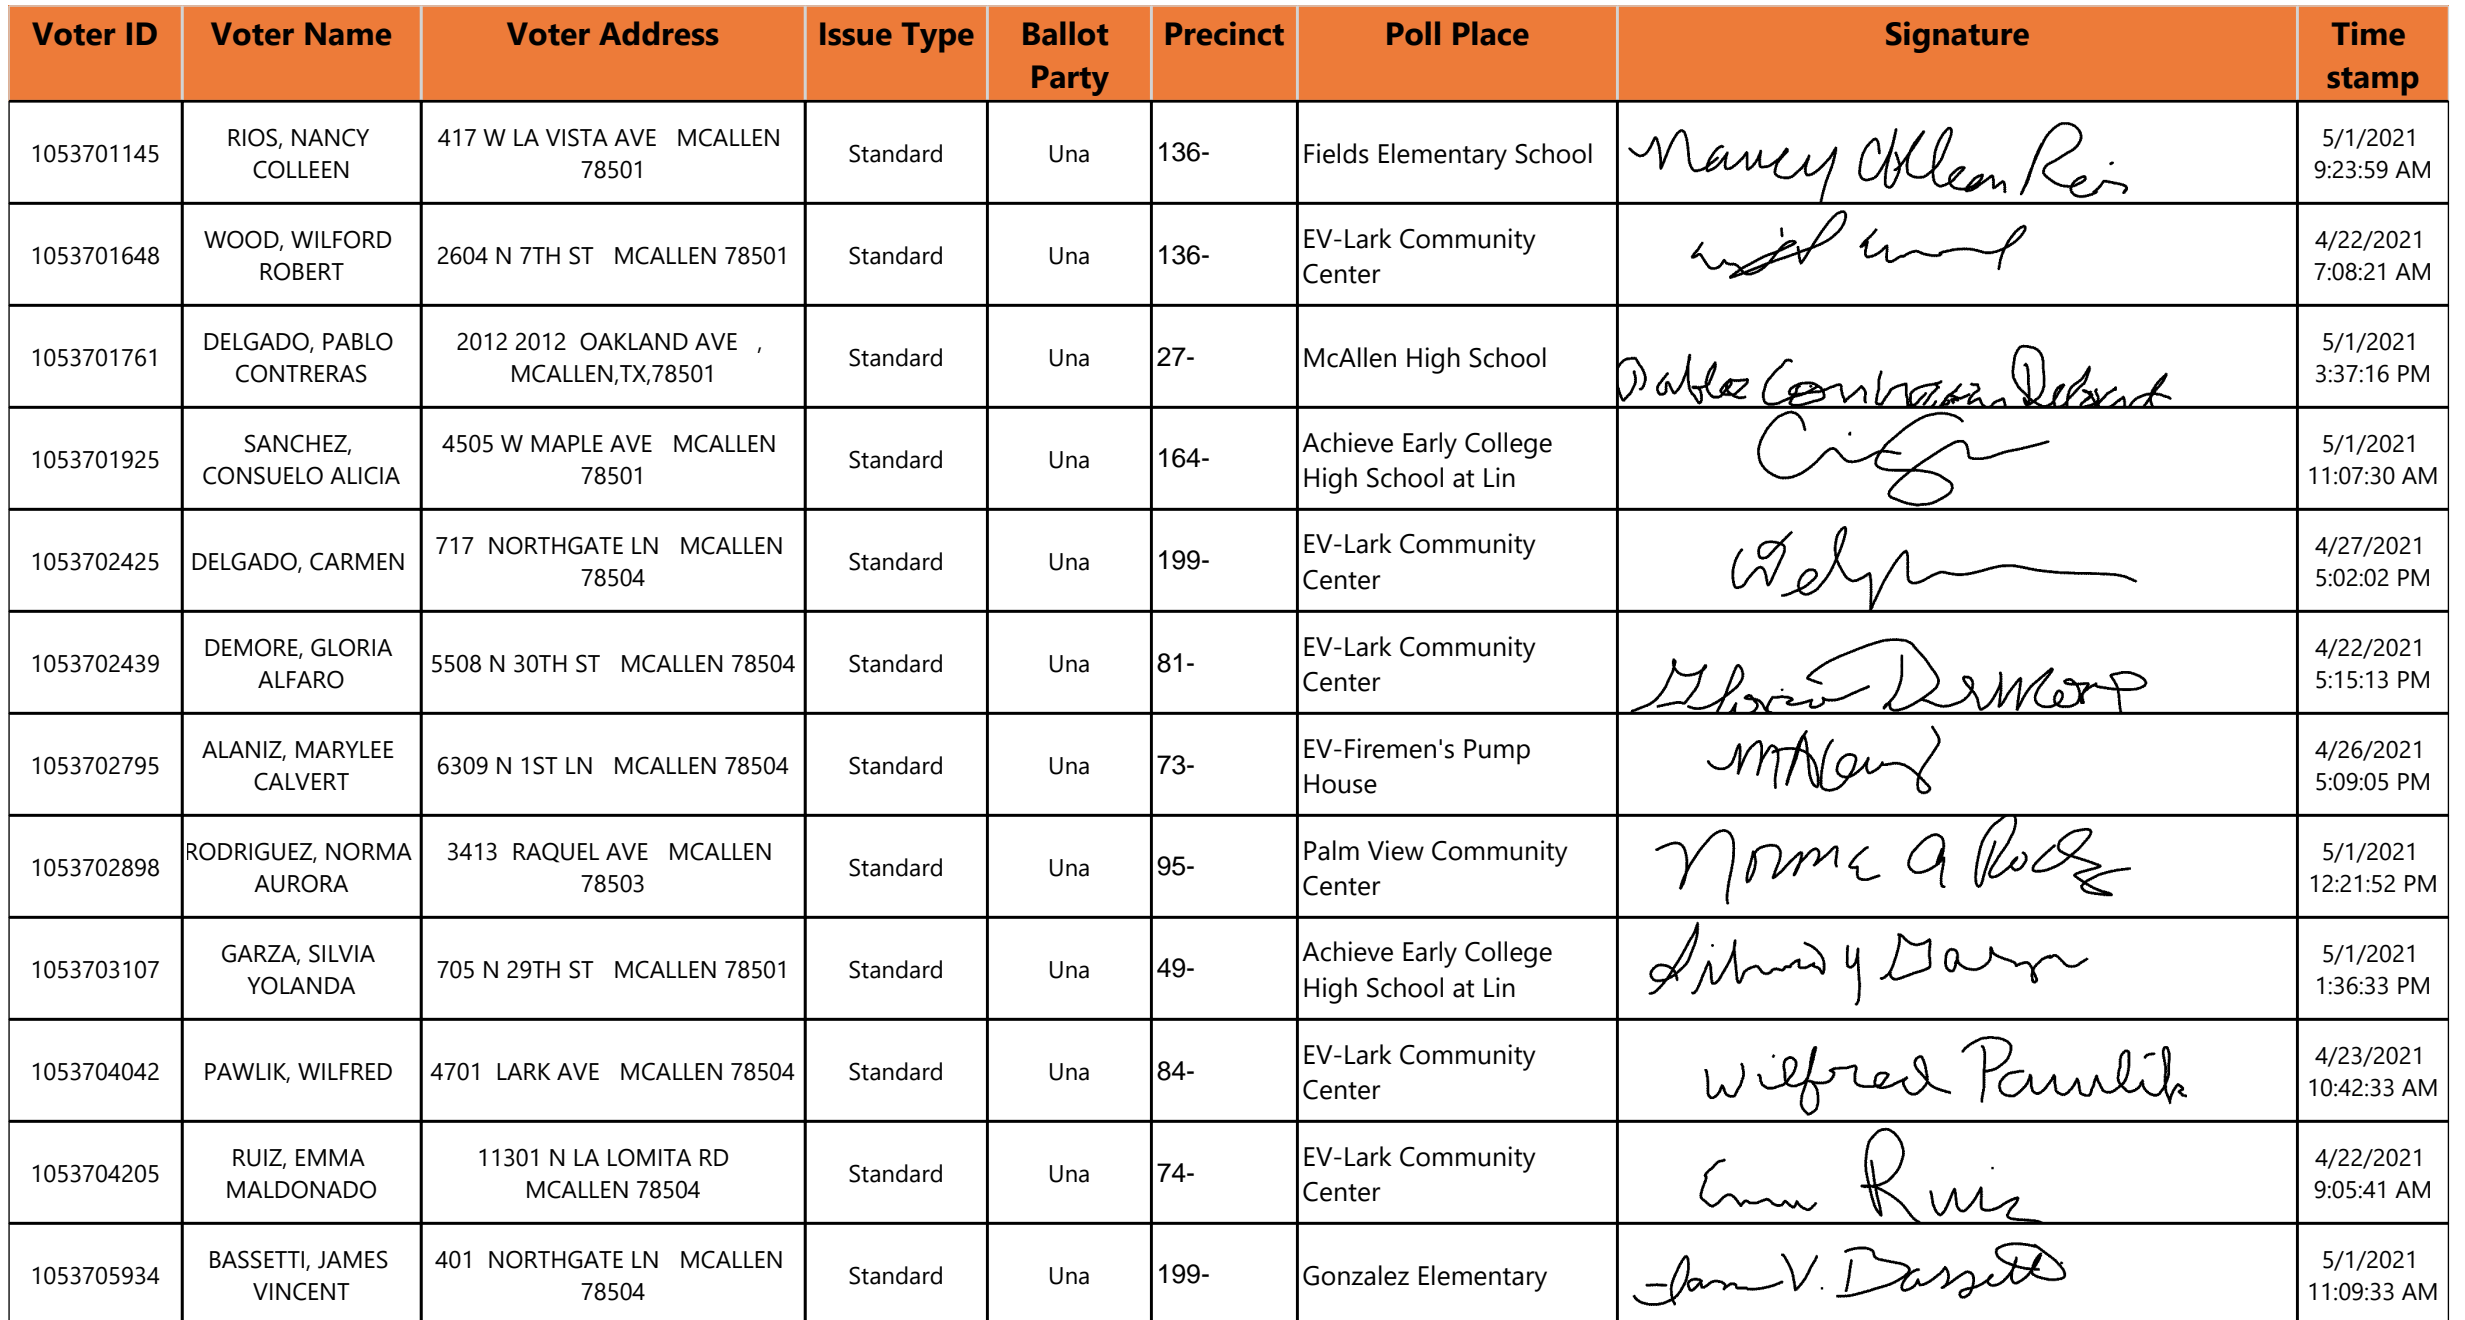 Voter ID Voter Name Voter Address Issue Type Ballot Party Precinct Poll Place Signature Time stamp
1053701145 RIOS, NANCY COLLEEN 417 W LA VISTA AVE MCALLEN 78501 Standard Una 136- Fields Elementary School Nancy Colleen Rios 5/1/2021 9:23:59 AM
1053701648 WOOD, WILFORD ROBERT 2604 N 7TH ST MCALLEN 78501 Standard Una 136- EV-Lark Community Center 4/22/2021 7:08:21 AM
1053701761 DELGADO, PABLO CONTRERAS 2012 2012 OAKLAND AVE , MCALLEN,TX,78501 Standard Una 27- McAllen High School Pablo Contreras Delgado 5/1/2021 3:37:16 PM
1053701925 SANCHEZ, CONSUELO ALICIA 4505 W MAPLE AVE MCALLEN 78501 Standard Una 164- Achieve Early College High School at Lin 5/1/2021 11:07:30 AM
1053702425 DELGADO, CARMEN 717 NORTHGATE LN MCALLEN 78504 Standard Una 199- EV-Lark Community Center 4/27/2021 5:02:02 PM
1053702439 DEMORE, GLORIA ALFARO 5508 N 30TH ST MCALLEN 78504 Standard Una 81- EV-Lark Community Center Gloria DeMore 4/22/2021 5:15:13 PM
1053702795 ALANIZ, MARYLEE CALVERT 6309 N 1ST LN MCALLEN 78504 Standard Una 73- EV-Firemen's Pump House 4/26/2021 5:09:05 PM
1053702898 RODRIGUEZ, NORMA AURORA 3413 RAQUEL AVE MCALLEN 78503 Standard Una 95- Palm View Community Center Norma A 5/1/2021 12:21:52 PM
1053703107 GARZA, SILVIA YOLANDA 705 N 29TH ST MCALLEN 78501 Standard Una 49- Achieve Early College High School at Lin Silvia Y Garza 5/1/2021 1:36:33 PM
1053704042 PAWLIK, WILFRED 4701 LARK AVE MCALLEN 78504 Standard Una 84- EV-Lark Community Center Wilfred Pawlik 4/23/2021 10:42:33 AM
1053704205 RUIZ, EMMA MALDONADO 11301 N LA LOMITA RD MCALLEN 78504 Standard Una 74- EV-Lark Community Center Emma Ruiz 4/22/2021 9:05:41 AM
1053705934 BASSETTI, JAMES VINCENT 401 NORTHGATE LN MCALLEN 78504 Standard Una 199- Gonzalez Elementary James V. Bassetti 5/1/2021 11:09:33 AM